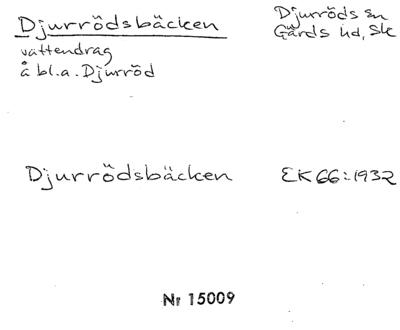 Djurrödsbäcken
Djurröds sn
Gärds hd, Sk
vattendrag
å bl.a. Djurröd
Djurrödsbäcken
EK 66:1932
Nr 15009